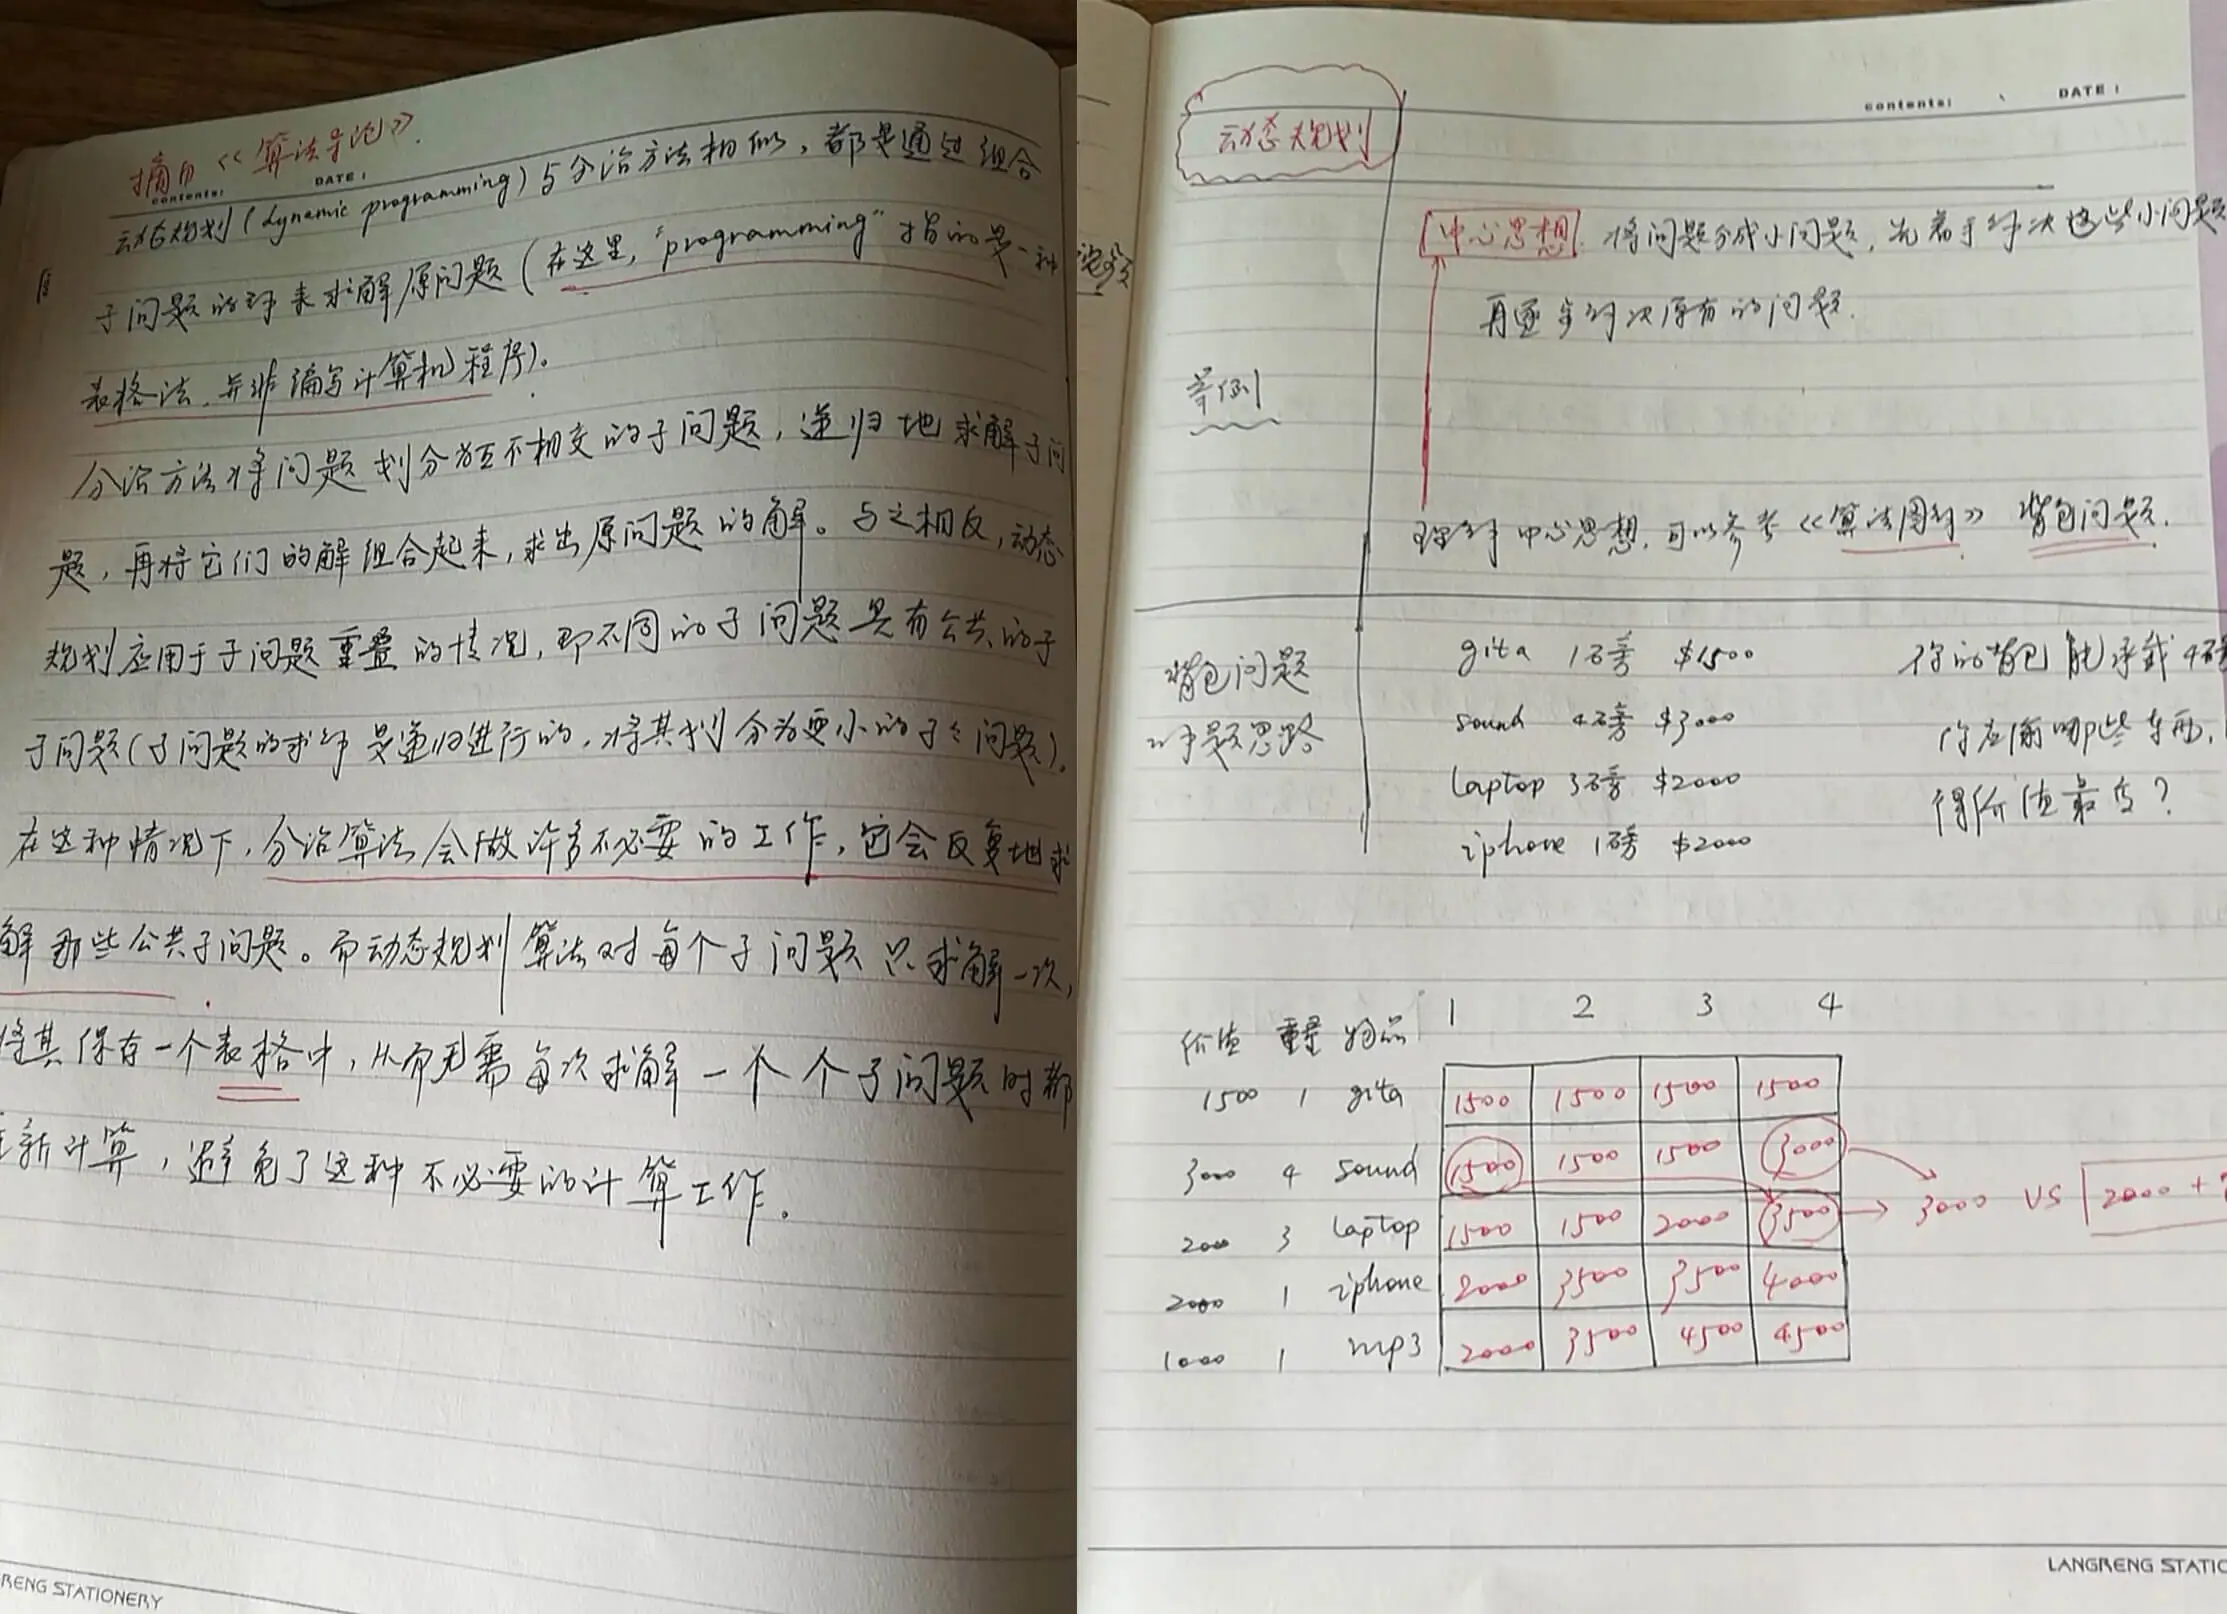 摘自《算法导论》.
contents: DATE:
动态规划(dynamic programming)与分治方法相似，都是通过组合
子问题的解来求解原问题(在这里，"programming"指的是一种
表格法，并非编写计算机程序)。
分治方法将问题划分为互不相交的子问题，递归地求解子问
题，再将它们的解组合起来，求出原问题的解。与之相反，动态
规划应用于子问题重叠的情况，即不同的子问题具有公共的子
子问题(子问题的求解是递归进行的，将其划分为更小的子子问题)。
在这种情况下，分治算法会做许多不必要的工作，它会反复地求
解那些公共子问题。而动态规划算法对每个子问题只求解一次，
将其保存一个表格中，从而无需每次求解一个个子问题时都
新计算，避免了这种不必要的计算工作。
RENG STATIONERY
contents: DATE:
动态规划
中心思想 将问题分成小问题，先着手解决这些小问题
再逐步解决原有的问题.
举例
理解中心思想，可以参考《算法图解》背包问题.
背包问题
解题思路
gita 1磅 $1500 你的背包能承载4磅
sound 4磅 $3000 你应偷哪些东西，
laptop 3磅 $2000 得价值最高？
iphone 1磅 $2000
1 2 3 4
价值 重量 物品
1500 1 gita 1500 1500 1500 1500
3000 4 sound 1500 1500 1500 3000
2000 3 laptop 1500 1500 2000 3500 3000 VS 2000 +
2000 1 iphone 2000 3500 3500 4000
1000 1 mp3 2000 3500 4500 4500
LANGRENG STATIO